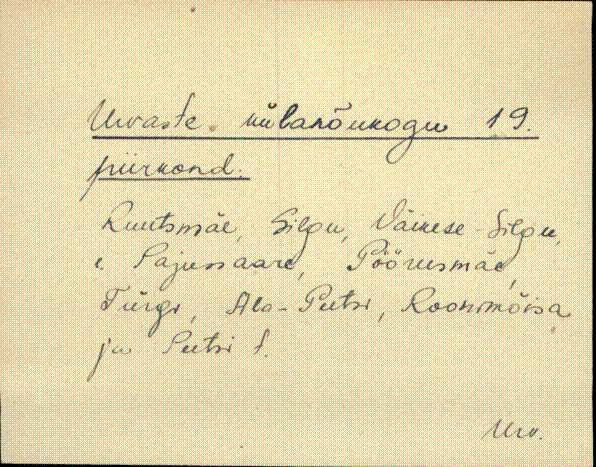 Urvaste külanõukogu 19.
piirkond.
Kuutsmäe, Silgu, Väikese-Silgu,
e. Pajussaare, Pöörusmäe,
Türgi, Ala-Peetri, Kooŕimõisa
ja Peetri t.
Urv.